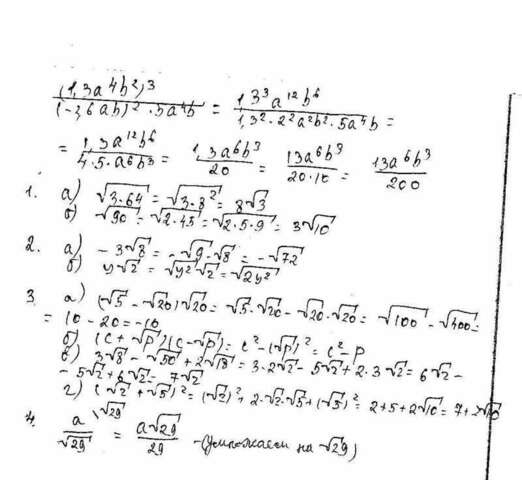 (1,3a⁴b²)³ / (-2,6ab)²·5a⁴b = 1,3³a¹²b⁶ / 1,3²·2²a²b²·5a⁴b =
= 1,3a¹²b⁶ / 4·5·a⁶b³ = 1,3a⁶b³ / 20 = 13a⁶b³ / 20·10 = 13a⁶b³ / 200
1. а) √3·64 = √3·8² = 8√3
б) √90 = √2·45 = √2·5·9 = 3√10
2. а) -3√8 = -√9·√8 = -√72
б) y√2 = √y²√2 = √2y²
3. а) (√5 - √20)√20 = √5·√20 - √20·√20 = √100 - √400 =
= 10 - 20 = -10
б) (c + √p)(c - √p) = c² - (√p)² = c² - p
в) 3√8 - √50 + 2√18 = 3·2√2 - 5√2 + 2·3√2 = 6√2 -
- 5√2 + 6√2 = 7√2
г) (√2 + √5)² = (√2)² + 2·√2·√5 + (√5)² = 2 + 5 + 2√10 = 7 + 2√10
4. a \√29 / √29 = a√29 / 29 - (умножаем на √29)